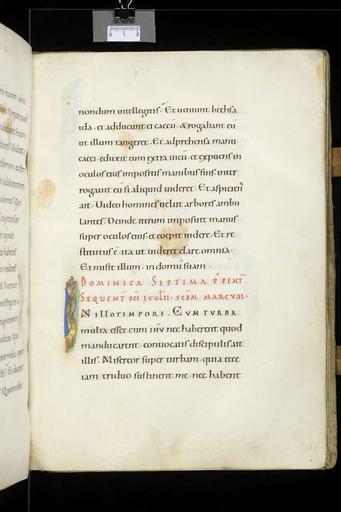 nondum intellegitis. Et ueniunt bethsa
ida. et adducunt ei caecū. & rogabant eū
ut illum tangeret. Et adprehensa manu
caeci. eduxit eum extra uicū. et expuens in
oculos eius impositis manibus suis. inter
rogauit eū si aliquid uideret. Et aspiciens
ait. Uideo homines uelut arbores ambu
lantes. Deinde iterum imposuit manus
super oculos eius. et coepit uidere. Et re
stitutus ē. ita ut uideret clare omnia.
Et misit illum. in domū suam.
DOMINICA SEPTIMA
SEQUENT SCI EVGLI. SCDM MARCUM.
N ILLO TEMPORE. CUM TURBA
multa esset cum ihu nec haberent quod
manducarent. conuocatis discipulis ait
illis. Misereor super turbam. quia ecce
iam triduo sustinent me. nec habent